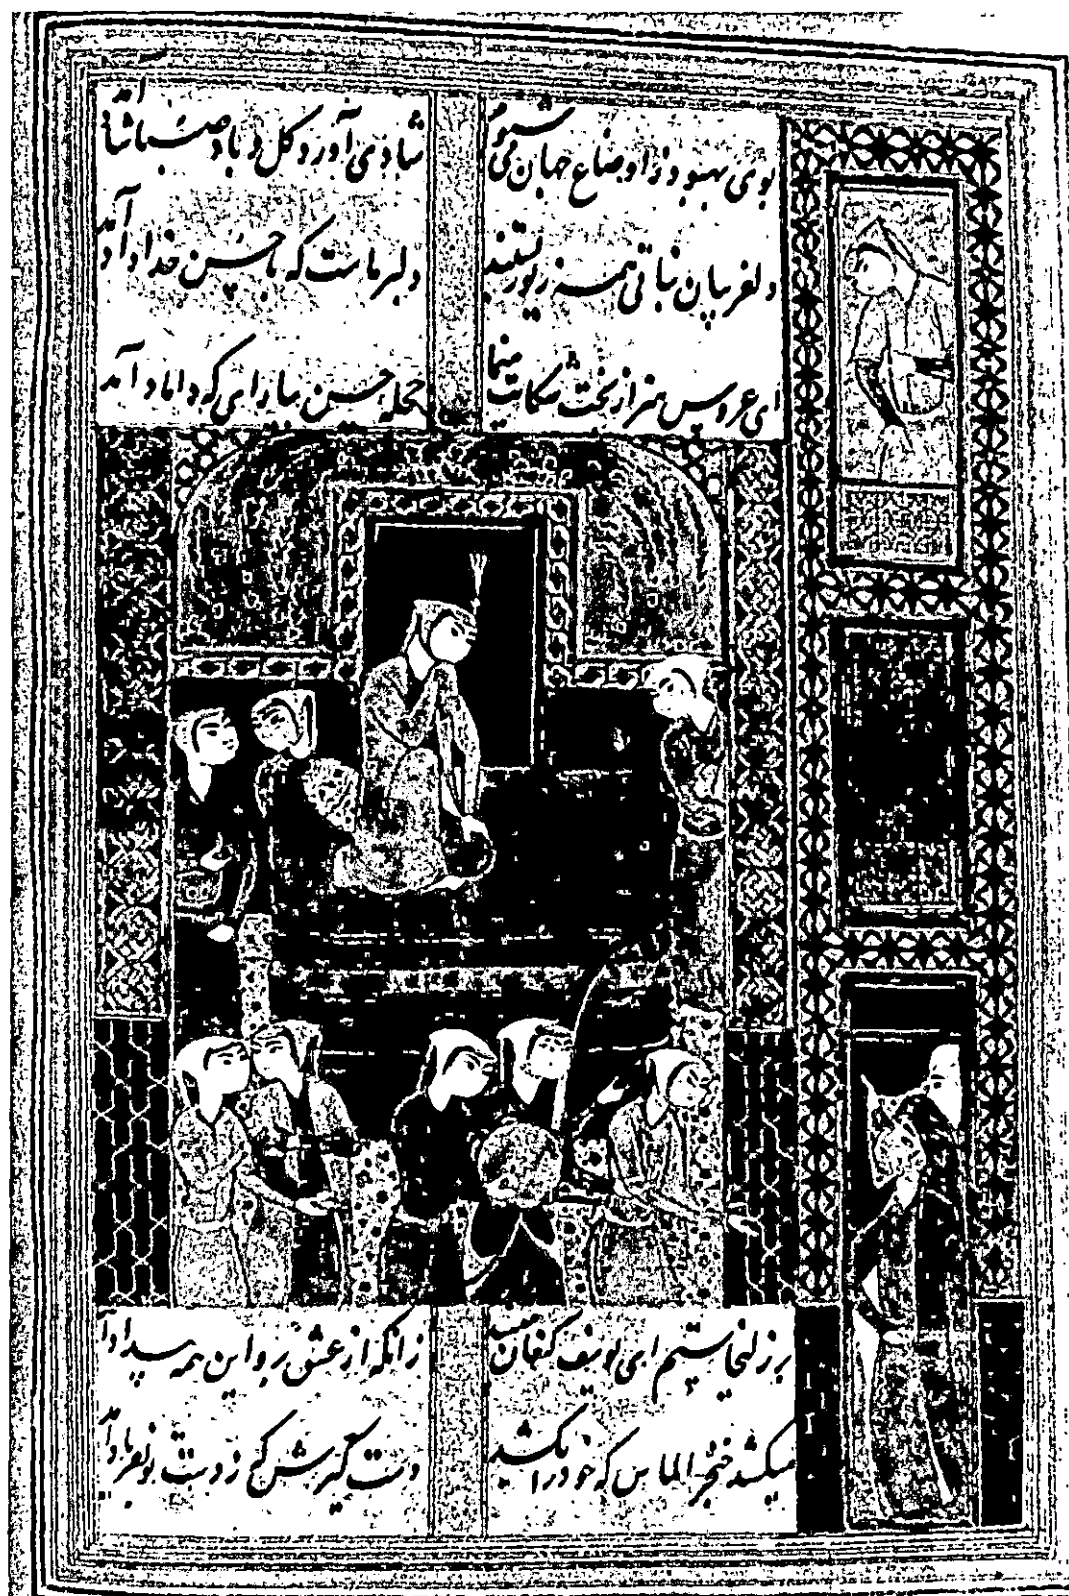 بوی بهبود ز اوضاع جهان می شنوم
شادی آورد گل و باد صبا شاد آمد
دلفریبان نباتی همه زیور بستند
دلبر ماست که با حسن خداداد آمد
ای عروس هنر از بخت شکایت منما
حجله حسن بیارای که داماد آمد
بر زلیخا ستم ای یوسف کنعان مپسند
زانکه از عشق برو این همه بیداد آمد
میکشد خنجر الماس که خود را بکشد
دست گیرش که ز دست تو بفریاد آمد